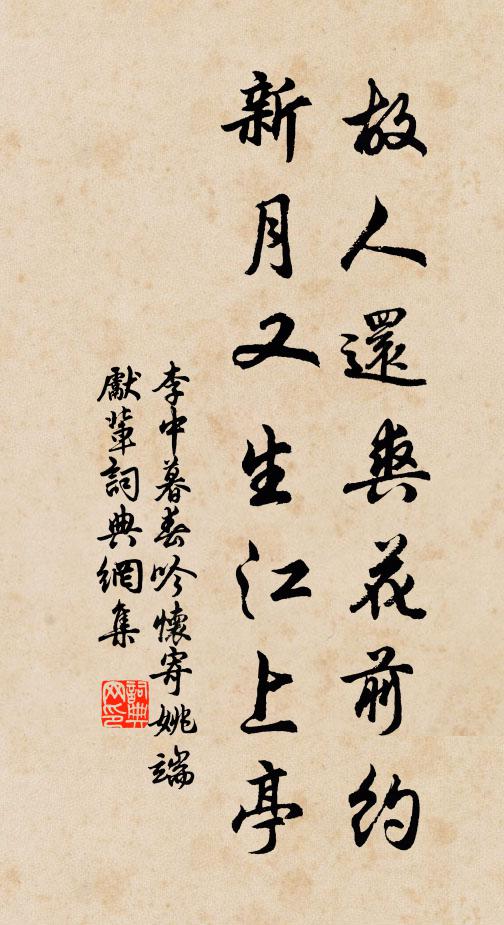 故人還爽花前約
新月又生江上亭
李中暮春吟懷寄姚端
獻輩詞典網集
詞典网印